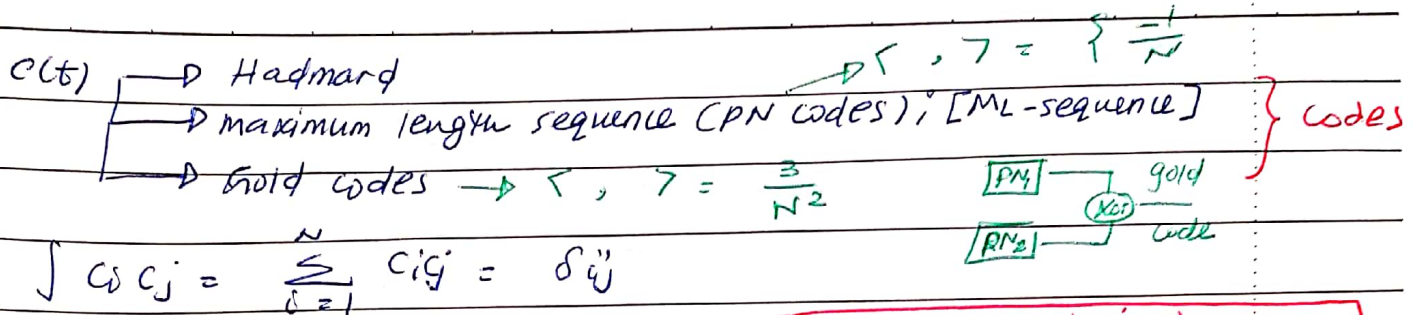 c(t) → Hadmard
→ maximum length sequence (PN codes); [ML-sequence] → < , > = { -1/N
→ Gold codes → < , > = 3/N²
} codes
PN1
XOR
PN2
gold code
∫ ci cj = Σ_{i=1}^{N} ci cj = δij